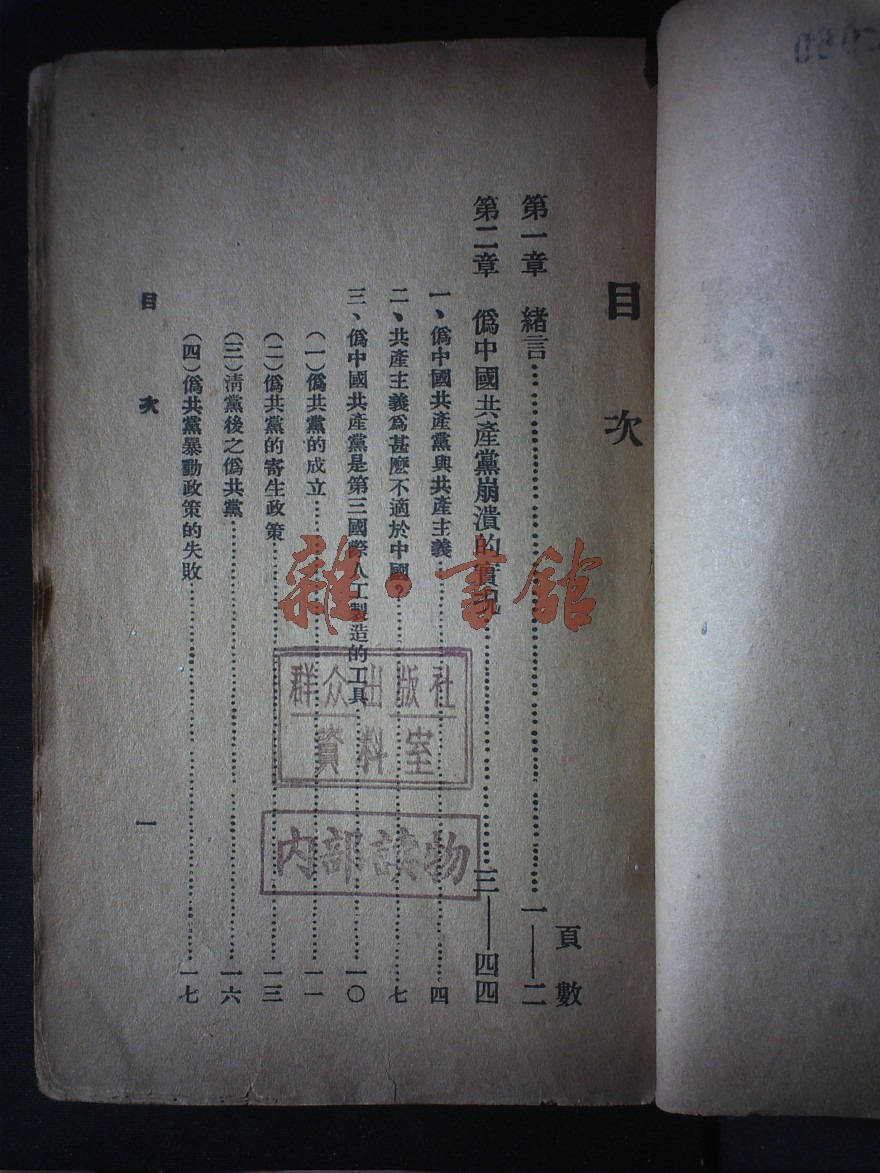 目次
頁數
第一章 緒言……………一——二
第二章 僞中國共產黨崩潰的實況……………三——四四
一、僞中國共產黨與共產主義……………四
二、共產主義爲甚麼不適於中國?……………七
三、僞中國共產黨是第三國際人工製造的工具……………一〇
(一)僞共黨的成立……………一一
(二)僞共黨的寄生政策……………一三
(三)清黨後之僞共黨……………一六
(四)僞共黨暴動政策的失敗……………一七
目次
一
雜·書館
群众出版社
資料室
内部读物